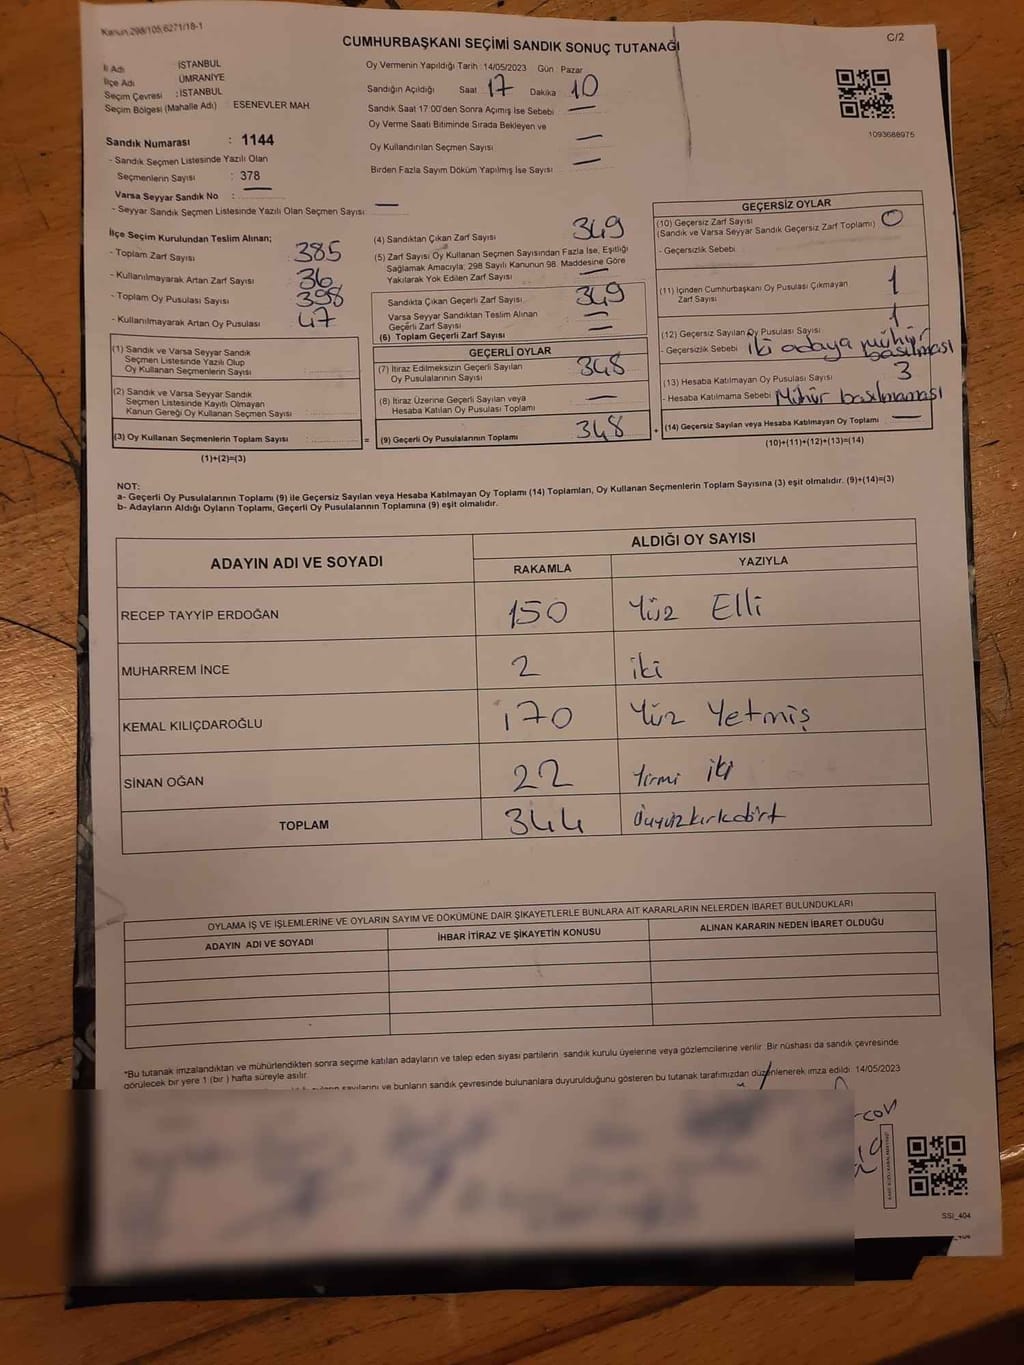 Kanun,298/105,6271/18-1
C/2
CUMHURBAŞKANI SEÇİMİ SANDIK SONUÇ TUTANAĞI
İl Adı : İSTANBUL
İlçe Adı : ÜMRANİYE
Seçim Çevresi : İSTANBUL
Seçim Bölgesi (Mahalle Adı) : ESENEVLER MAH
Sandık Numarası : 1144
- Sandık Seçmen Listesinde Yazılı Olan
Seçmenlerin Sayısı : 378
Varsa Seyyar Sandık No : —
- Seyyar Sandık Seçmen Listesinde Yazılı Olan Seçmen Sayısı: —
Oy Vermenin Yapıldığı Tarih :14/05/2023 Gün : Pazar
Sandığın Açıldığı Saat 17 Dakika 10
Sandık Saat 17:00'den Sonra Açımış İse Sebebi : —
Oy Verme Saati Bitiminde Sırada Bekleyen ve
Oy Kullandırılan Seçmen Sayısı —
Birden Fazla Sayım Döküm Yapılmış İse Sayısı : —
1093688975
İlçe Seçim Kurulundan Teslim Alınan;
- Toplam Zarf Sayısı : 385
- Kullanılmayarak Artan Zarf Sayısı : 36
- Toplam Oy Pusulası Sayısı : 398
- Kullanılmayarak Artan Oy Pusulası : 47
(1) Sandık ve Varsa Seyyar Sandık
Seçmen Listesinde Yazılı Olup
Oy Kullanan Seçmenlerin Sayısı :
(2) Sandık ve Varsa Seyyar Sandık
Seçmen Listesinde Kayıtlı Olmayan
Kanun Gereği Oy Kullanan Seçmen Sayısı :
(3) Oy Kullanan Seçmenlerin Toplam Sayısı : =
(1)+(2)=(3)
(4) Sandıktan Çıkan Zarf Sayısı : 349
(5) Zarf Sayısı Oy Kullanan Seçmen Sayısından Fazla İse, Eşitliği
Sağlamak Amacıyla; 298 Sayılı Kanunun 98. Maddesine Göre
Yakılarak Yok Edilen Zarf Sayısı : —
Sandıkta Çıkan Geçerli Zarf Sayısı : 349
Varsa Seyyar Sandıktan Teslim Alınan
Geçerli Zarf Sayısı : —
(6) Toplam Geçerli Zarf Sayısı : —
GEÇERLİ OYLAR
(7) İtiraz Edilmeksizin Geçerli Sayılan
Oy Pusulalarının Sayısı : 348
(8) İtiraz Üzerine Geçerli Sayılan veya
Hesaba Katılan Oy Pusulası Toplamı : —
(9) Geçerli Oy Pusulalarının Toplamı : 348 +
GEÇERSİZ OYLAR
(10) Geçersiz Zarf Sayısı
(Sandık ve Varsa Seyyar Sandık Geçersiz Zarf Toplamı) : 0
- Geçersizlik Sebebi :
(11) İçinden Cumhurbaşkanı Oy Pusulası Çıkmayan
Zarf Sayısı 1
(12) Geçersiz Sayılan Oy Pusulası Sayısı : 1
- Geçersizlik Sebebi : iki adaya mühür
basılması
(13) Hesaba Katılmayan Oy Pusulası Sayısı : 3
- Hesaba Katılmama Sebebi : Mühür basılmaması
(14) Geçersiz Sayılan veya Hesaba Katılmayan Oy Toplamı : —
(10)+(11)+(12)+(13)=(14)
NOT:
a- Geçerli Oy Pusulalarının Toplamı (9) ile Geçersiz Sayılan veya Hesaba Katılmayan Oy Toplamı (14) Toplamları, Oy Kullanan Seçmenlerin Toplam Sayısına (3) eşit olmalıdır. (9)+(14)=(3)
b- Adayların Aldığı Oyların Toplamı, Geçerli Oy Pusulalarının Toplamına (9) eşit olmalıdır.
ADAYIN ADI VE SOYADI
ALDIĞI OY SAYISI
RAKAMLA YAZIYLA
RECEP TAYYİP ERDOĞAN 150 Yüz Elli
MUHARREM İNCE 2 iki
KEMAL KILIÇDAROĞLU 170 Yüz Yetmiş
SİNAN OĞAN 22 Yirmi iki
TOPLAM 344 üçyüzkırkdört
OYLAMA İŞ VE İŞLEMLERİNE VE OYLARIN SAYIM VE DÖKÜMÜNE DAİR ŞİKAYETLERLE BUNLARA AİT KARARLARIN NELERDEN İBARET BULUNDUKLARI
ADAYIN ADI VE SOYADI İHBAR İTİRAZ VE ŞİKAYETİN KONUSU ALINAN KARARIN NEDEN İBARET OLDUĞU
*Bu tutanak imzalandıktan ve mühürlendikten sonra seçime katılan adayların ve talep eden siyasi partilerin sandık kurulu üyelerine veya gözlemcilerine verilir. Bir nüshası da sandık çevresinde
görülecek bir yere 1 (bir ) hafta süreyle asılır.
sayılarını ve bunların sandık çevresinde bulunanlara duyurulduğunu gösteren bu tutanak tarafımızdan düzenlenerek imza edildi. 14/05/2023
SSI_404